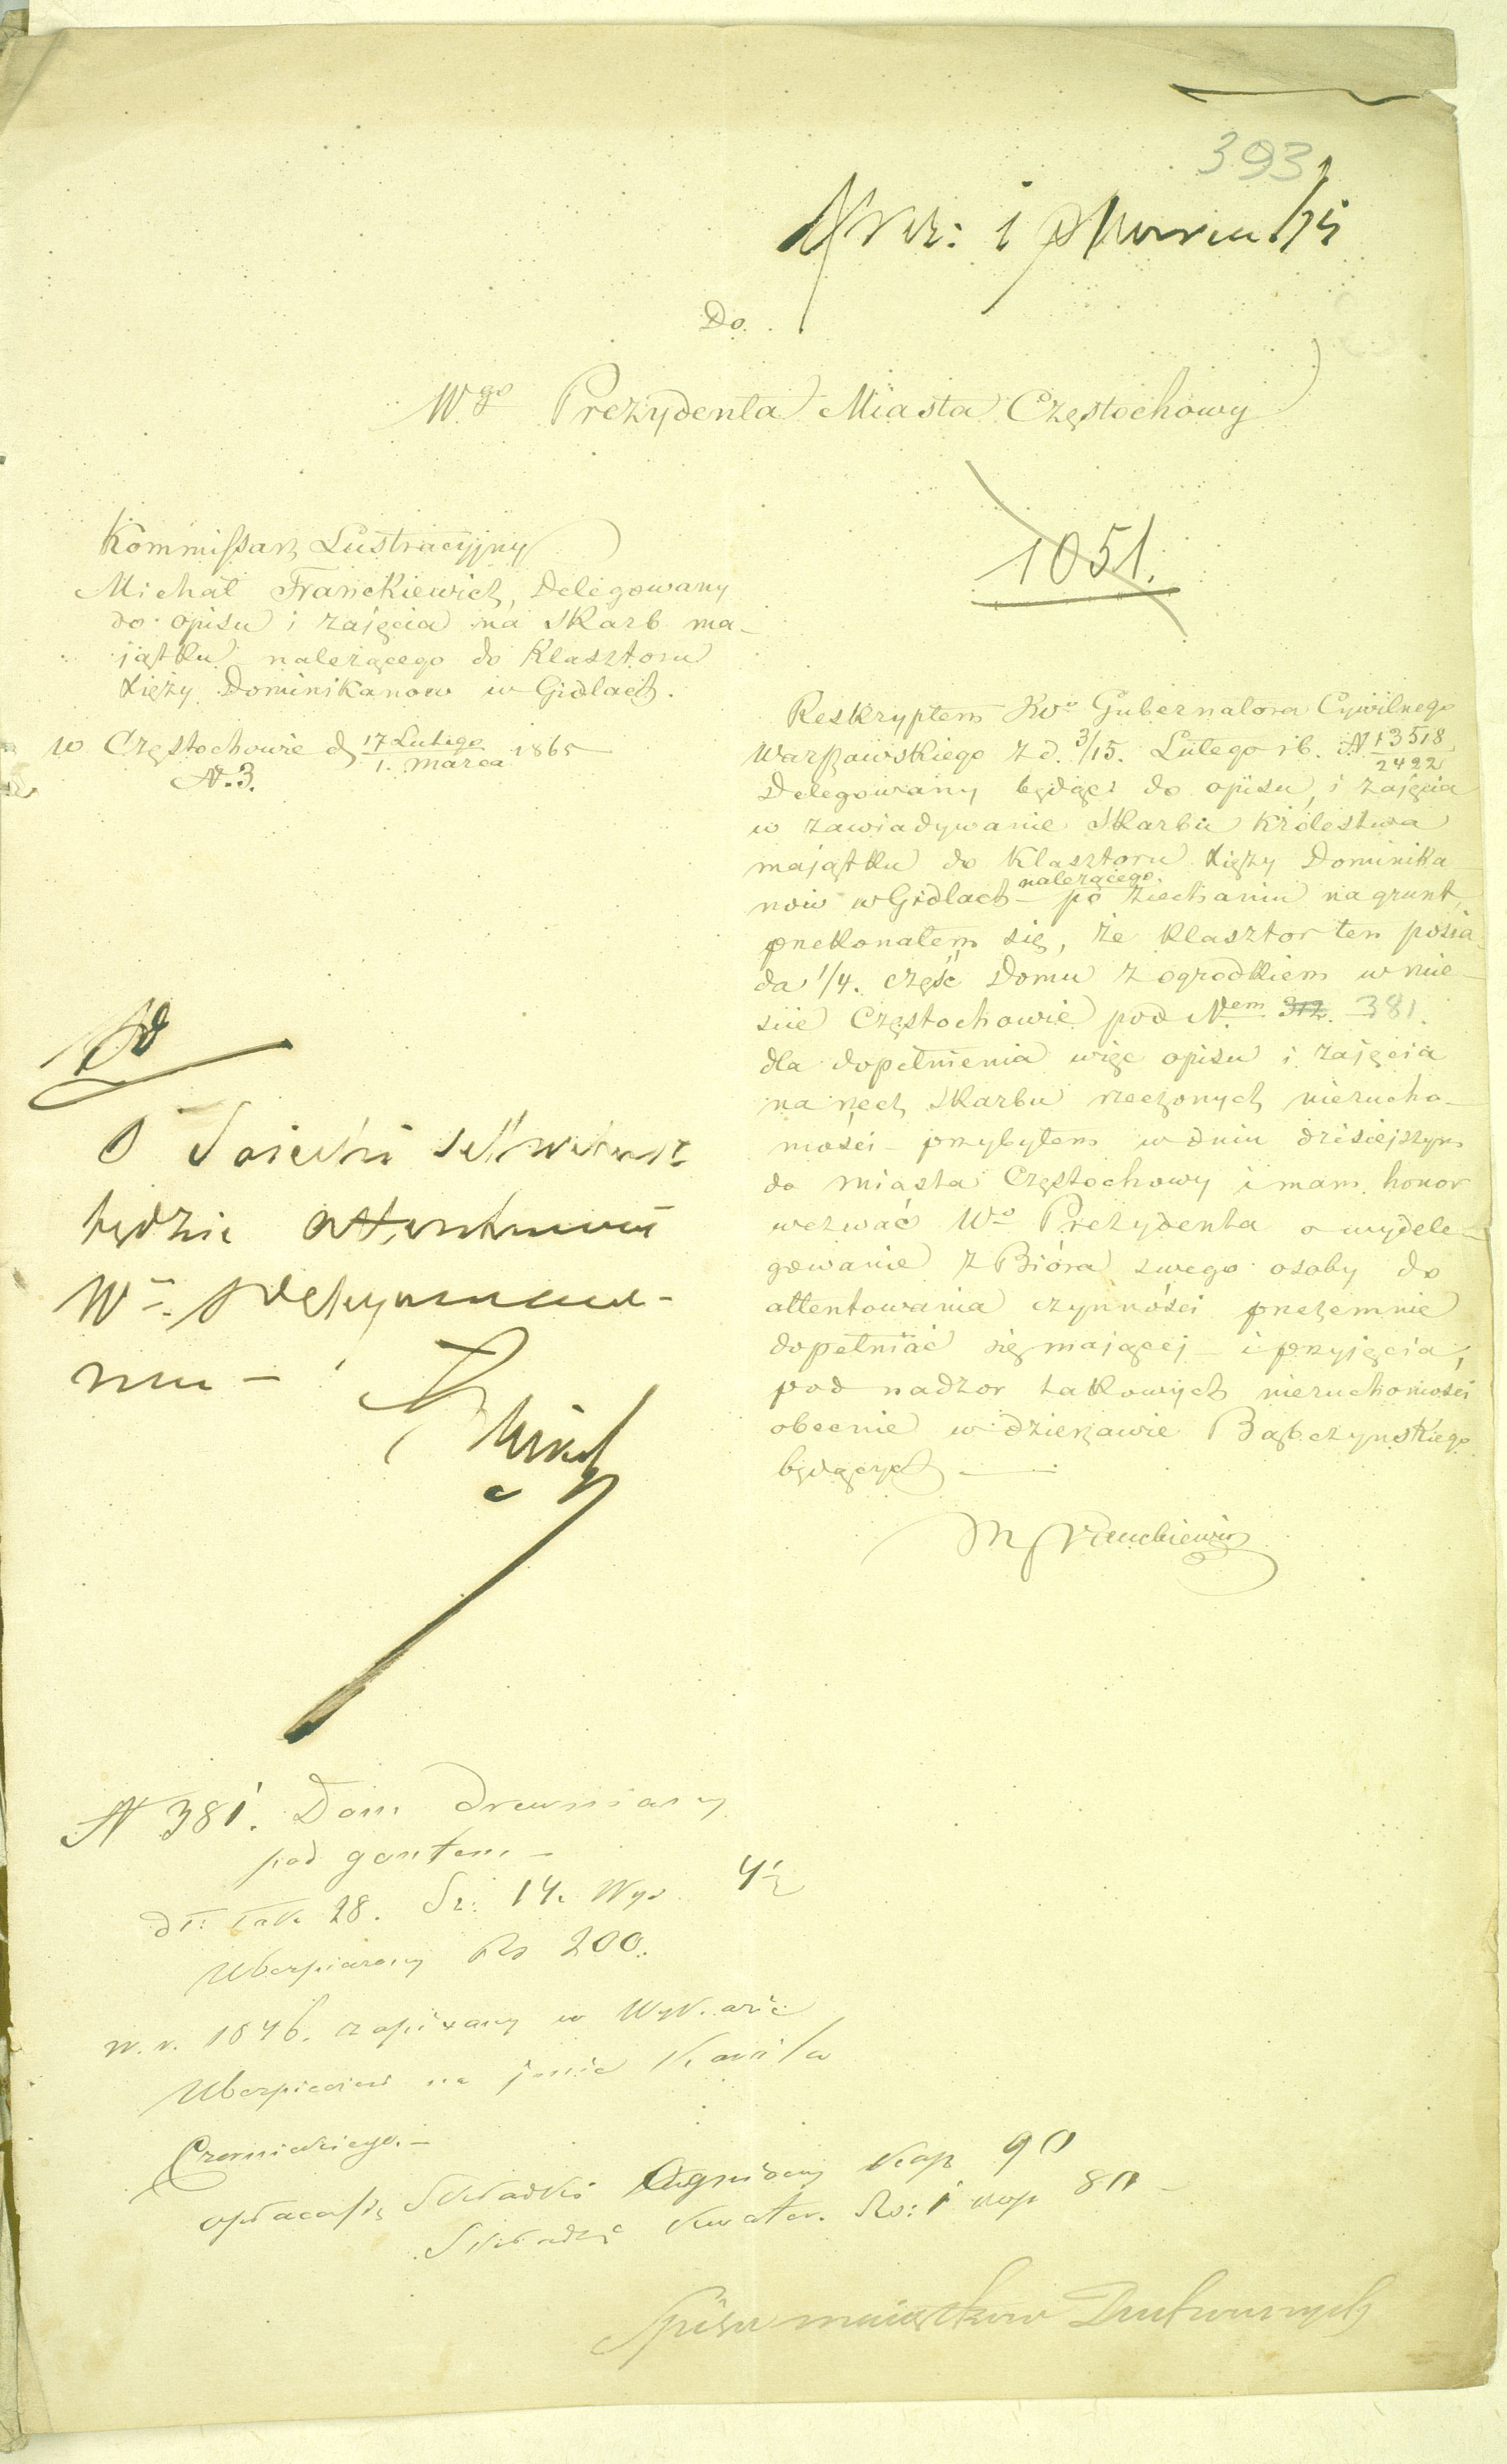 393
Do
W<sup>go</sup> Prezydenta Miasta Częstochowy
1051.
Kommissarz Lustracyjny
Michał Franckiewicz, Delegowany
do opisu i zajęcia na Skarb ma-
jątku należącego do Klasztoru
Xięży Dominikanow w Gidlach.
w Częstochowie d. 17 Lutego / 1. Marca 1865
N. 3.
Reskryptem JW<sup>o</sup> Gubernatora Cywilnego
Warszawskiego z d. 3/15. Lutego r b. N 13518 / 2422
Delegowany będąc do opisu, i zajęcia
w zawiadywanie Skarbu Królestwa
majątku do Klasztoru Xięży Dominika
nów w Gidlach należącego po ziechaniu na grunt,
przekonałem się, że klasztor ten posia
da 1/4. część Domu z ogrodkiem w mie-
scie Częstochowie pod N<sup>em</sup> 312. 381.
dla dopełnienia więc opisu i zajęcia
na rzecz Skarbu rzeczonych nierucho-
mości – przybyłem w dniu dzisiejszym
do miasta Częstochowy i mam honor
wezwać W<sup>o</sup> Prezydenta o wydele-
gowanie z Bióra swego osoby do
attentowania czynności przezemnie
dopełniać się mającej – i przyjęcia,
pod nadzor takowych nieruchomości
obecnie w dzierżawie Bąbczynskiego
będących —
M Franckiewicz
będzie
N 381. Dom drewniany
pod gontem –
dł: łok. 28. Sz: 14. Wys. 4½
Ubezpieczony Rs 200.
W. r. 1846. zapisany w Wykazie
Ubezpieczeń na imie Kamila
Czernickiego. –
opłaca się Składki Ogniowey kop 90
Składkę kwater. Rs: 1 kop 80 –
Spisu majątkow Duchownych